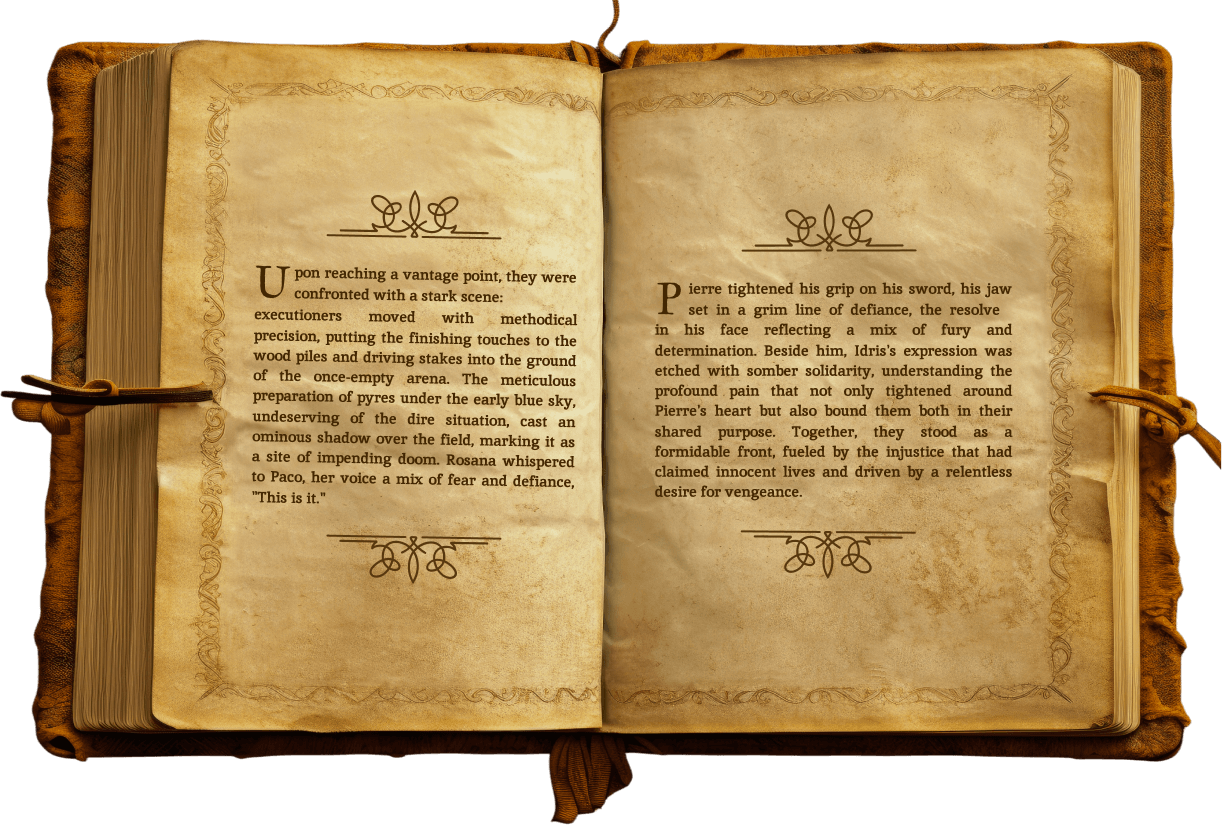 Upon reaching a vantage point, they were
confronted with a stark scene:
executioners moved with methodical
precision, putting the finishing touches to the
wood piles and driving stakes into the ground
of the once-empty arena. The meticulous
preparation of pyres under the early blue sky,
undeserving of the dire situation, cast an
ominous shadow over the field, marking it as
a site of impending doom. Rosana whispered
to Paco, her voice a mix of fear and defiance,
"This is it."
Pierre tightened his grip on his sword, his jaw
set in a grim line of defiance, the resolve
in his face reflecting a mix of fury and
determination. Beside him, Idris's expression was
etched with somber solidarity, understanding the
profound pain that not only tightened around
Pierre's heart but also bound them both in their
shared purpose. Together, they stood as a
formidable front, fueled by the injustice that had
claimed innocent lives and driven by a relentless
desire for vengeance.